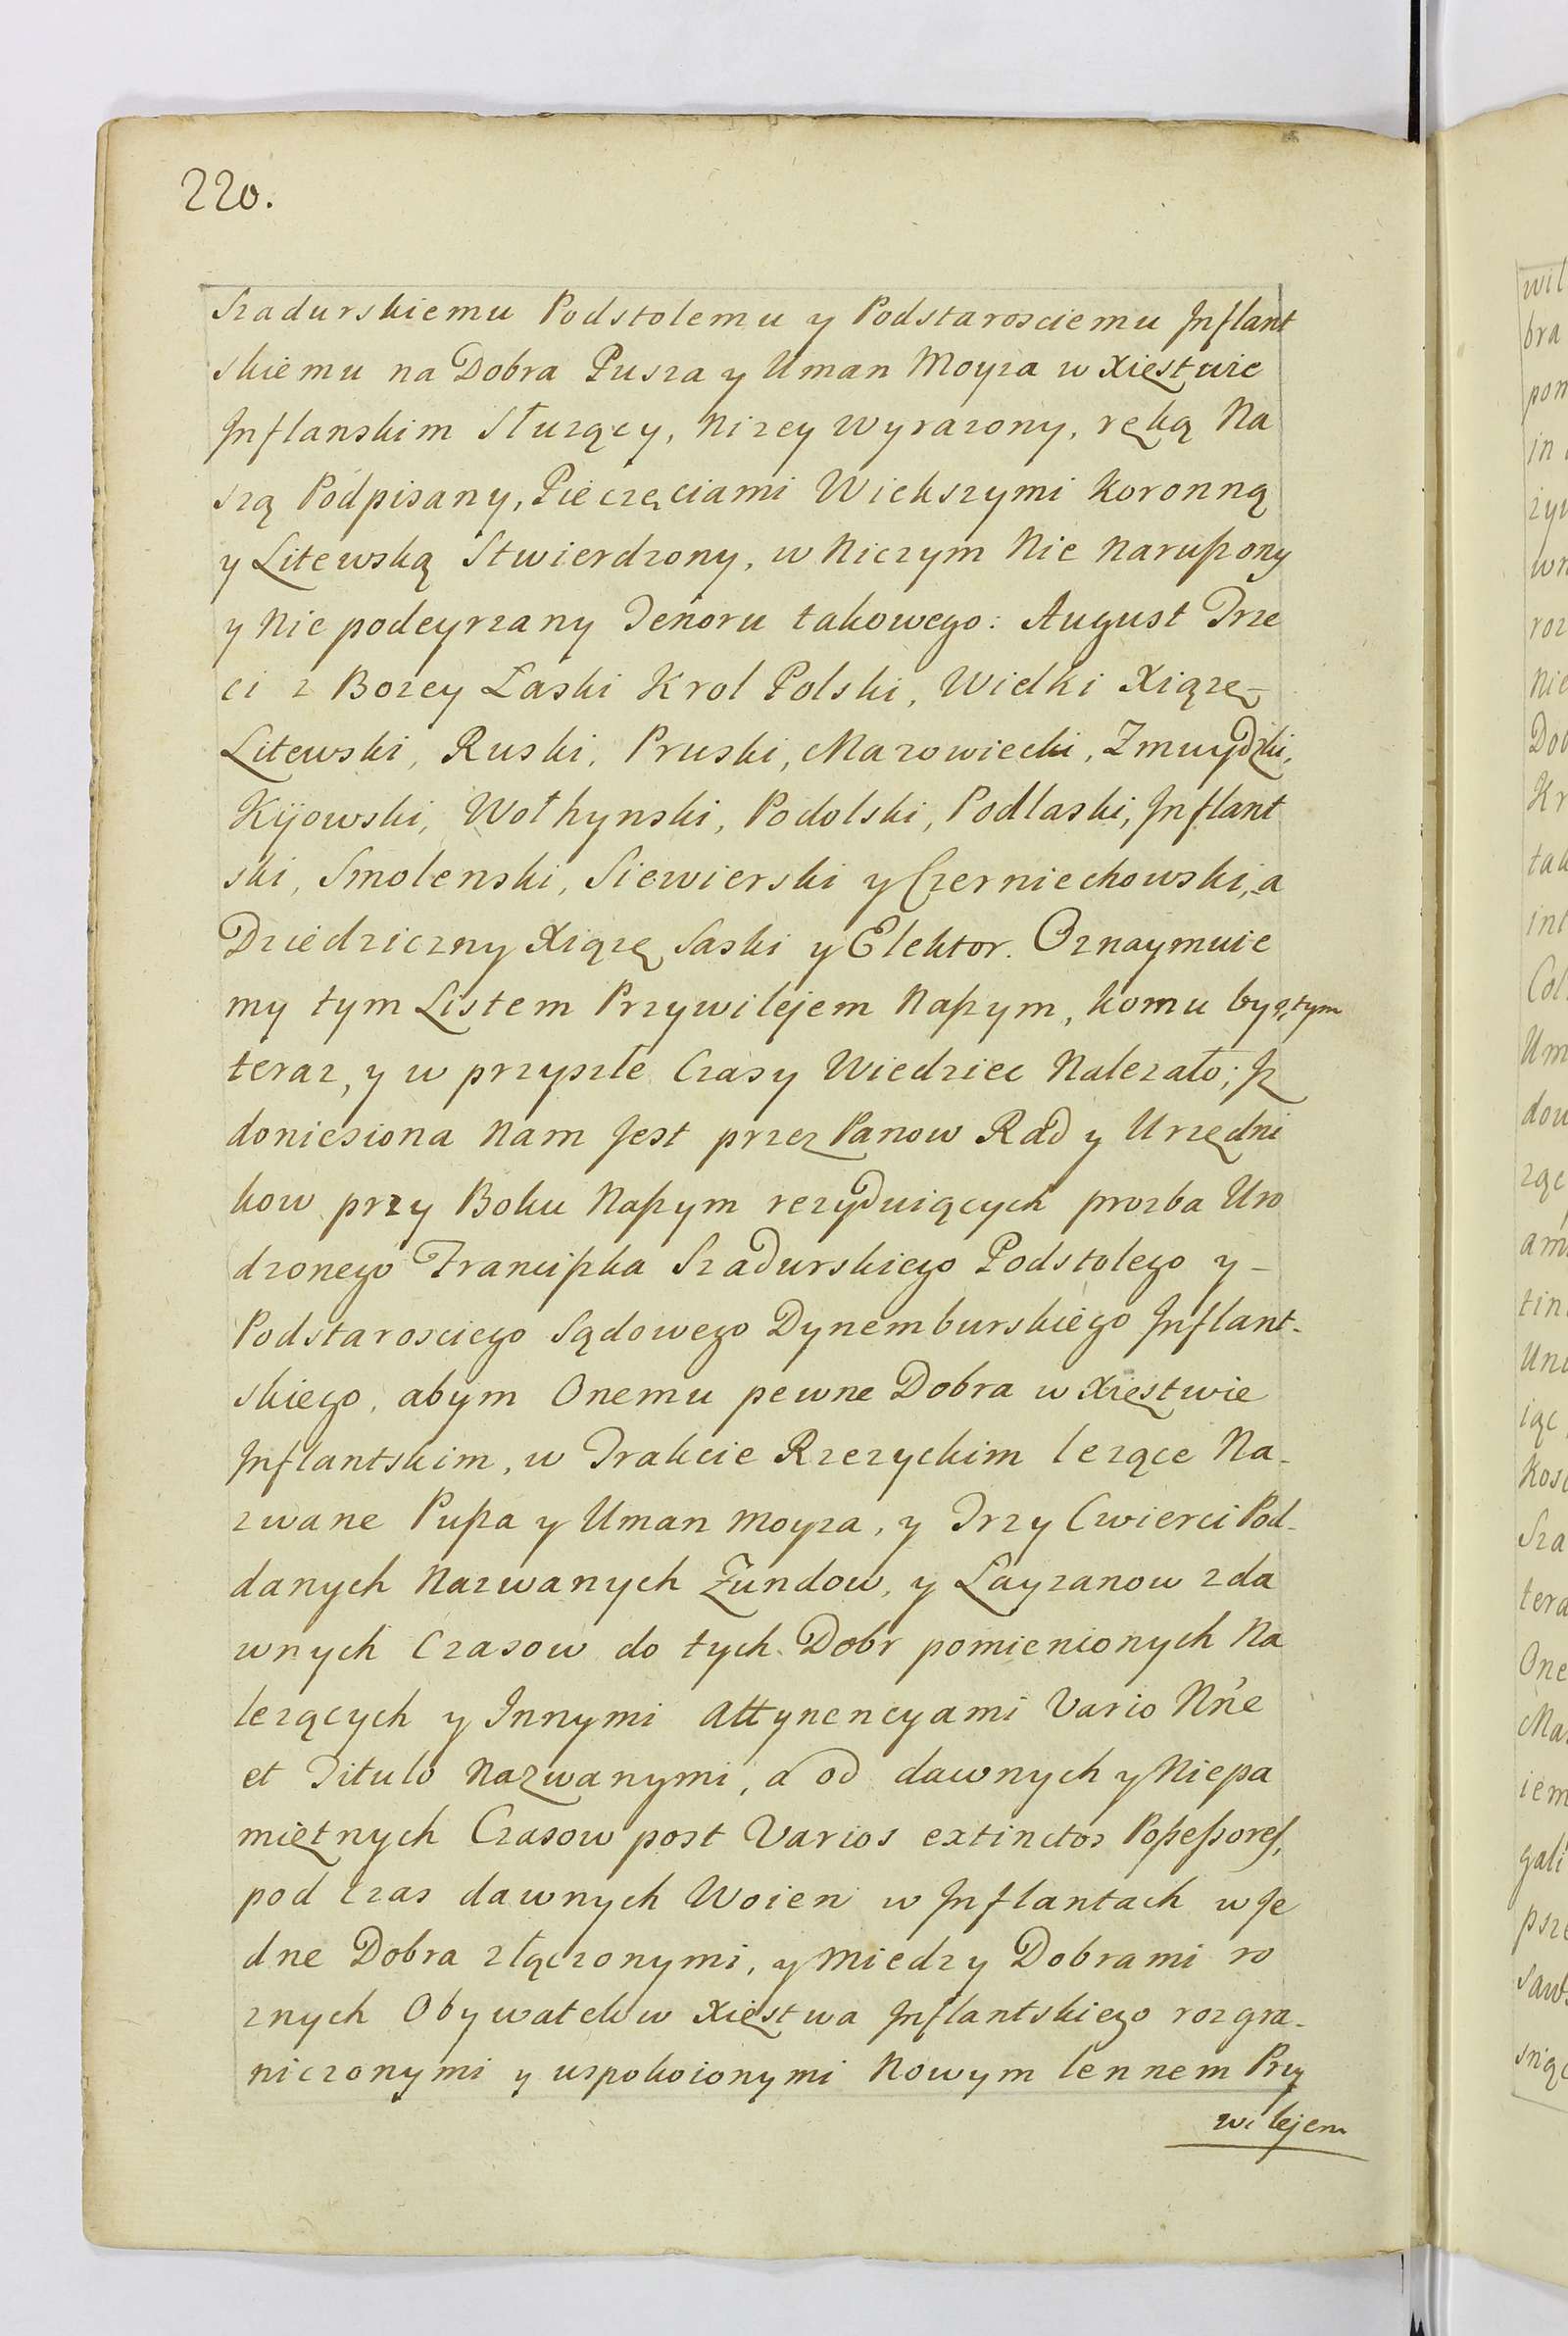 220.
Szadurskiemu Podstolemu y Podstarosciemu Inflant
skiemu na Dobra Pusza y Uman Moyza w Xięstwie
Inflanskim Służący, Nizey wyrazony, ręką Na
szą Podpisany, Pieczęciami Wiekszymi Koronną
y Litewską Stwierdzony, w Niczym Nie Naruszony
y Nie podeyrzany Tenoru takowego: August Trze
ci z Bozey Łaski Krol Polski, Wielki Xiązę
Litewski, Ruski, Pruski, Mazowiecki, Zmuydzki,
Kijowski, Wołhynski, Podolski, Podlaski, Inflant
ski, Smolenski, Siewierski y Czerniechowski, a
Dziedziczny Xiązę Saski y Elektor. Oznaymuie
my tym Listem Przywilejem Naszym, komu by o tym
teraz, y w przyszłe Czasy Wiedziec Nalezało; Iz
doniesiona Nam Jest przez Panow Rad y Urzędni
kow przy Boku Naszym rezyduiących prozba Uro
dzonego Franciszka Szadurskiego Podstolego y -
Podstarosciego Sądowego Dynemburskiego Inflant-
skiego, abym Onemu pewne Dobra w Xięstwie
Inflantskim, w Trakcie Rzezyckim lezące Na-
zwane Pusza y Uman Moyza, y Trzy Cwierci Pod-
danych Nazwanych Zundow, y Layzanow zda
wnych Czasow do tych Dobr pomienionych Na
lezących y Innymi attynencyami Vario Nn'e
et Titulo Nazwanymi, a od dawnych y Niepa
miętnych Czasow post Varios extinctos Possessores,
pod czas dawnych Woien w Inflantach w Je
dne Dobra złączonymi, y Miedzy Dobrami ro
znych Obywatelow Xięstwa Inflantskiego rozgra-
niczonymi y uspokoionymi Nowym lennem Przy
wilejem